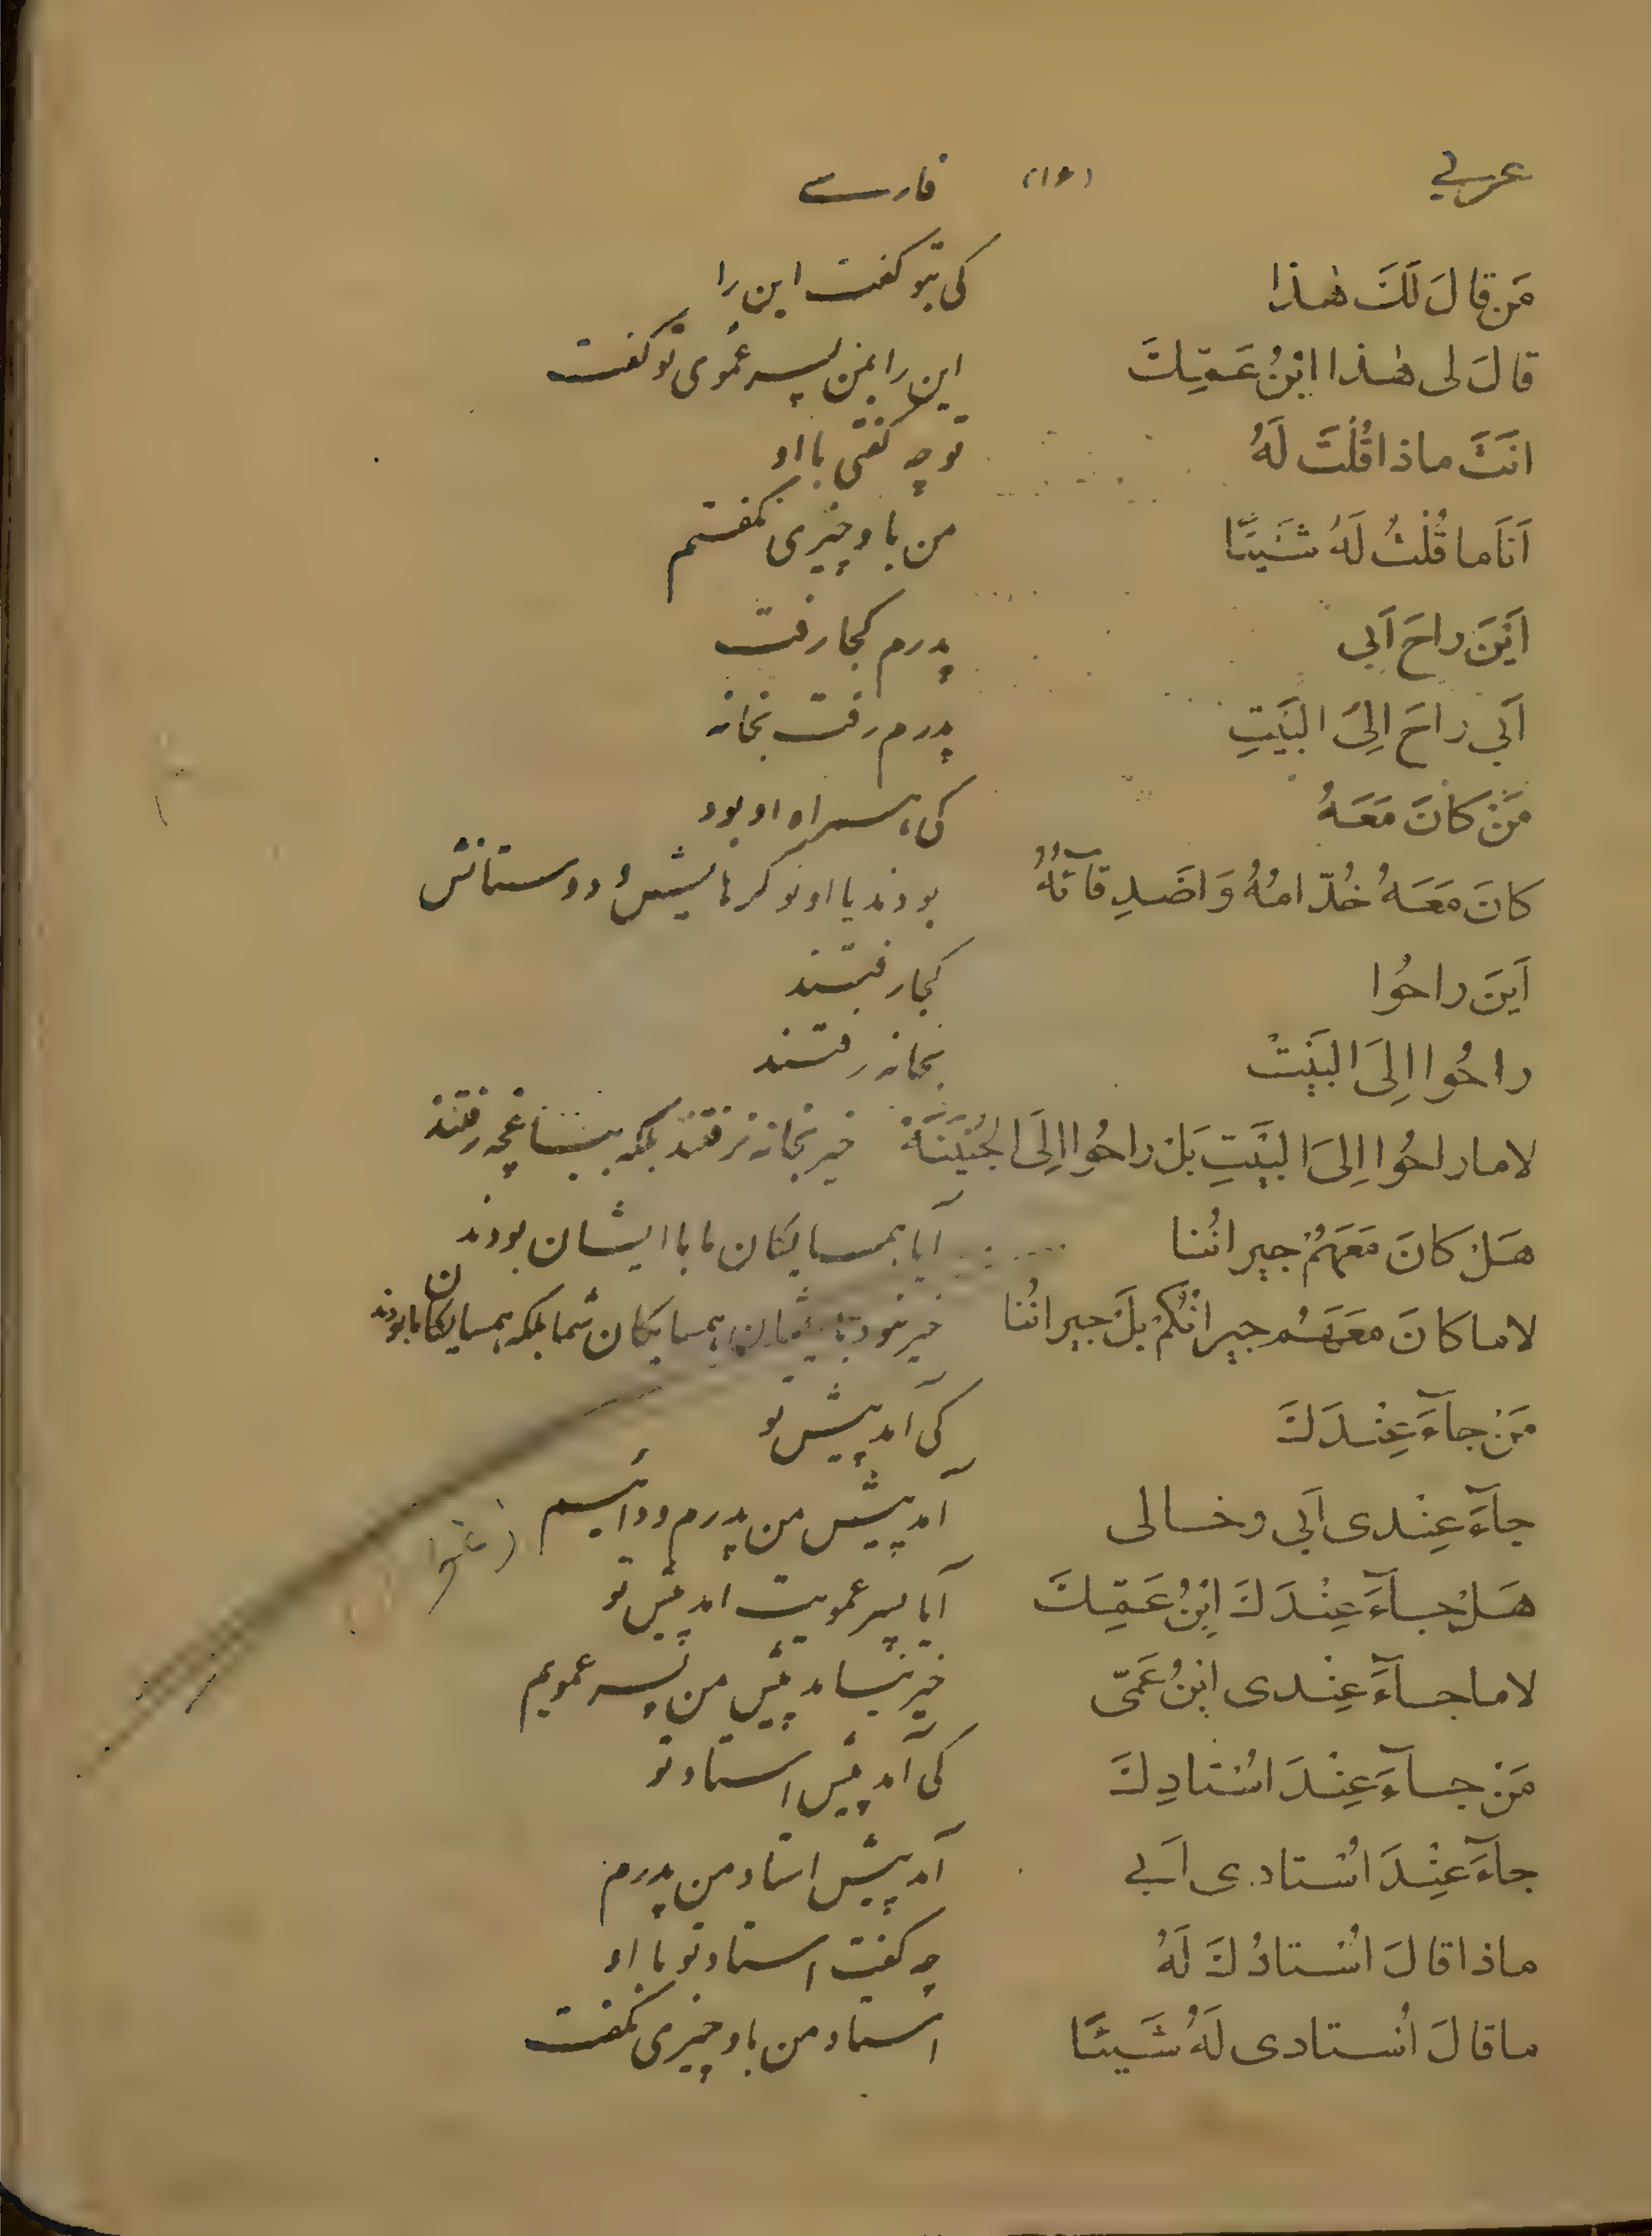 عربي (١٦) فارسے
مَن قالَ لَكَ هٰذا کی بتو کفت این را
قالَ لی هٰذا ابْنُ عَمِّكَ این را بمن پسر عموی تو کفت
انَتَ ماذا قُلْتَ لَهُ تو چه کفتی با او
اَنَا ما قُلْتُ لَهُ شَيئًا من با و چیزی نکفتم
اَيْنَ راحَ اَبي پدرم کجا رفت
اَبي راحَ اِلیَ البَيْتِ پدرم رفت بخانه
مَنْ كانَ مَعَهُ کی همراه او بود
كانَ مَعَهُ خُدّامُهُ وَ اصَدِقآئُهُ بودند با او نوکرهایش و دوستانش
اَينَ راحُوا کجا رفتند
راحُوا اِلَی البَيْتْ بخانه رفتند
لا ما راحُوا اِلیَ البَيْتِ بَلْ راحُوا اِلَی الجُنَيْنَةْ خیر بخانه نرفتند بلکه بباغچه رفتند
هَلْ كانَ مَعَهُمْ جيرانُنا آیا همسایکان ما با ایشان بودند
لا ما كانَ مَعَهُم جيرانُكُمْ بَلْ جيرانُنا خیر نبود با ایشان همسایکان شما بلکه همسایکان ما بودند
مَنْ جآءَ عِنْدَكَ کی آمد پیش تو
جآءَ عِنْدی اَبي و خالی آمد پیش من پدرم و دائیم
هَلْ جآءَ عِنْدَكَ اِبْنُ عَمِّكَ آیا پسر عمویت امد پیش تو
لا ما جآءَ عِنْدی اِبْنُ عَمّی خیر نیامد پیش من پسر عمویم
مَنْ جآءَ عِنْدَ اسْتادِكَ کی آمد پیش استاد تو
جآءَ عِنْدَ اسْتادی اَبي آمد پیش استاد من پدرم
ماذا قالَ اسْتادُكَ لَهُ چه کفت استاد تو با او
ما قالَ اُسْتادی لَهُ شَيئًا استاد من با و چیزی نکفت